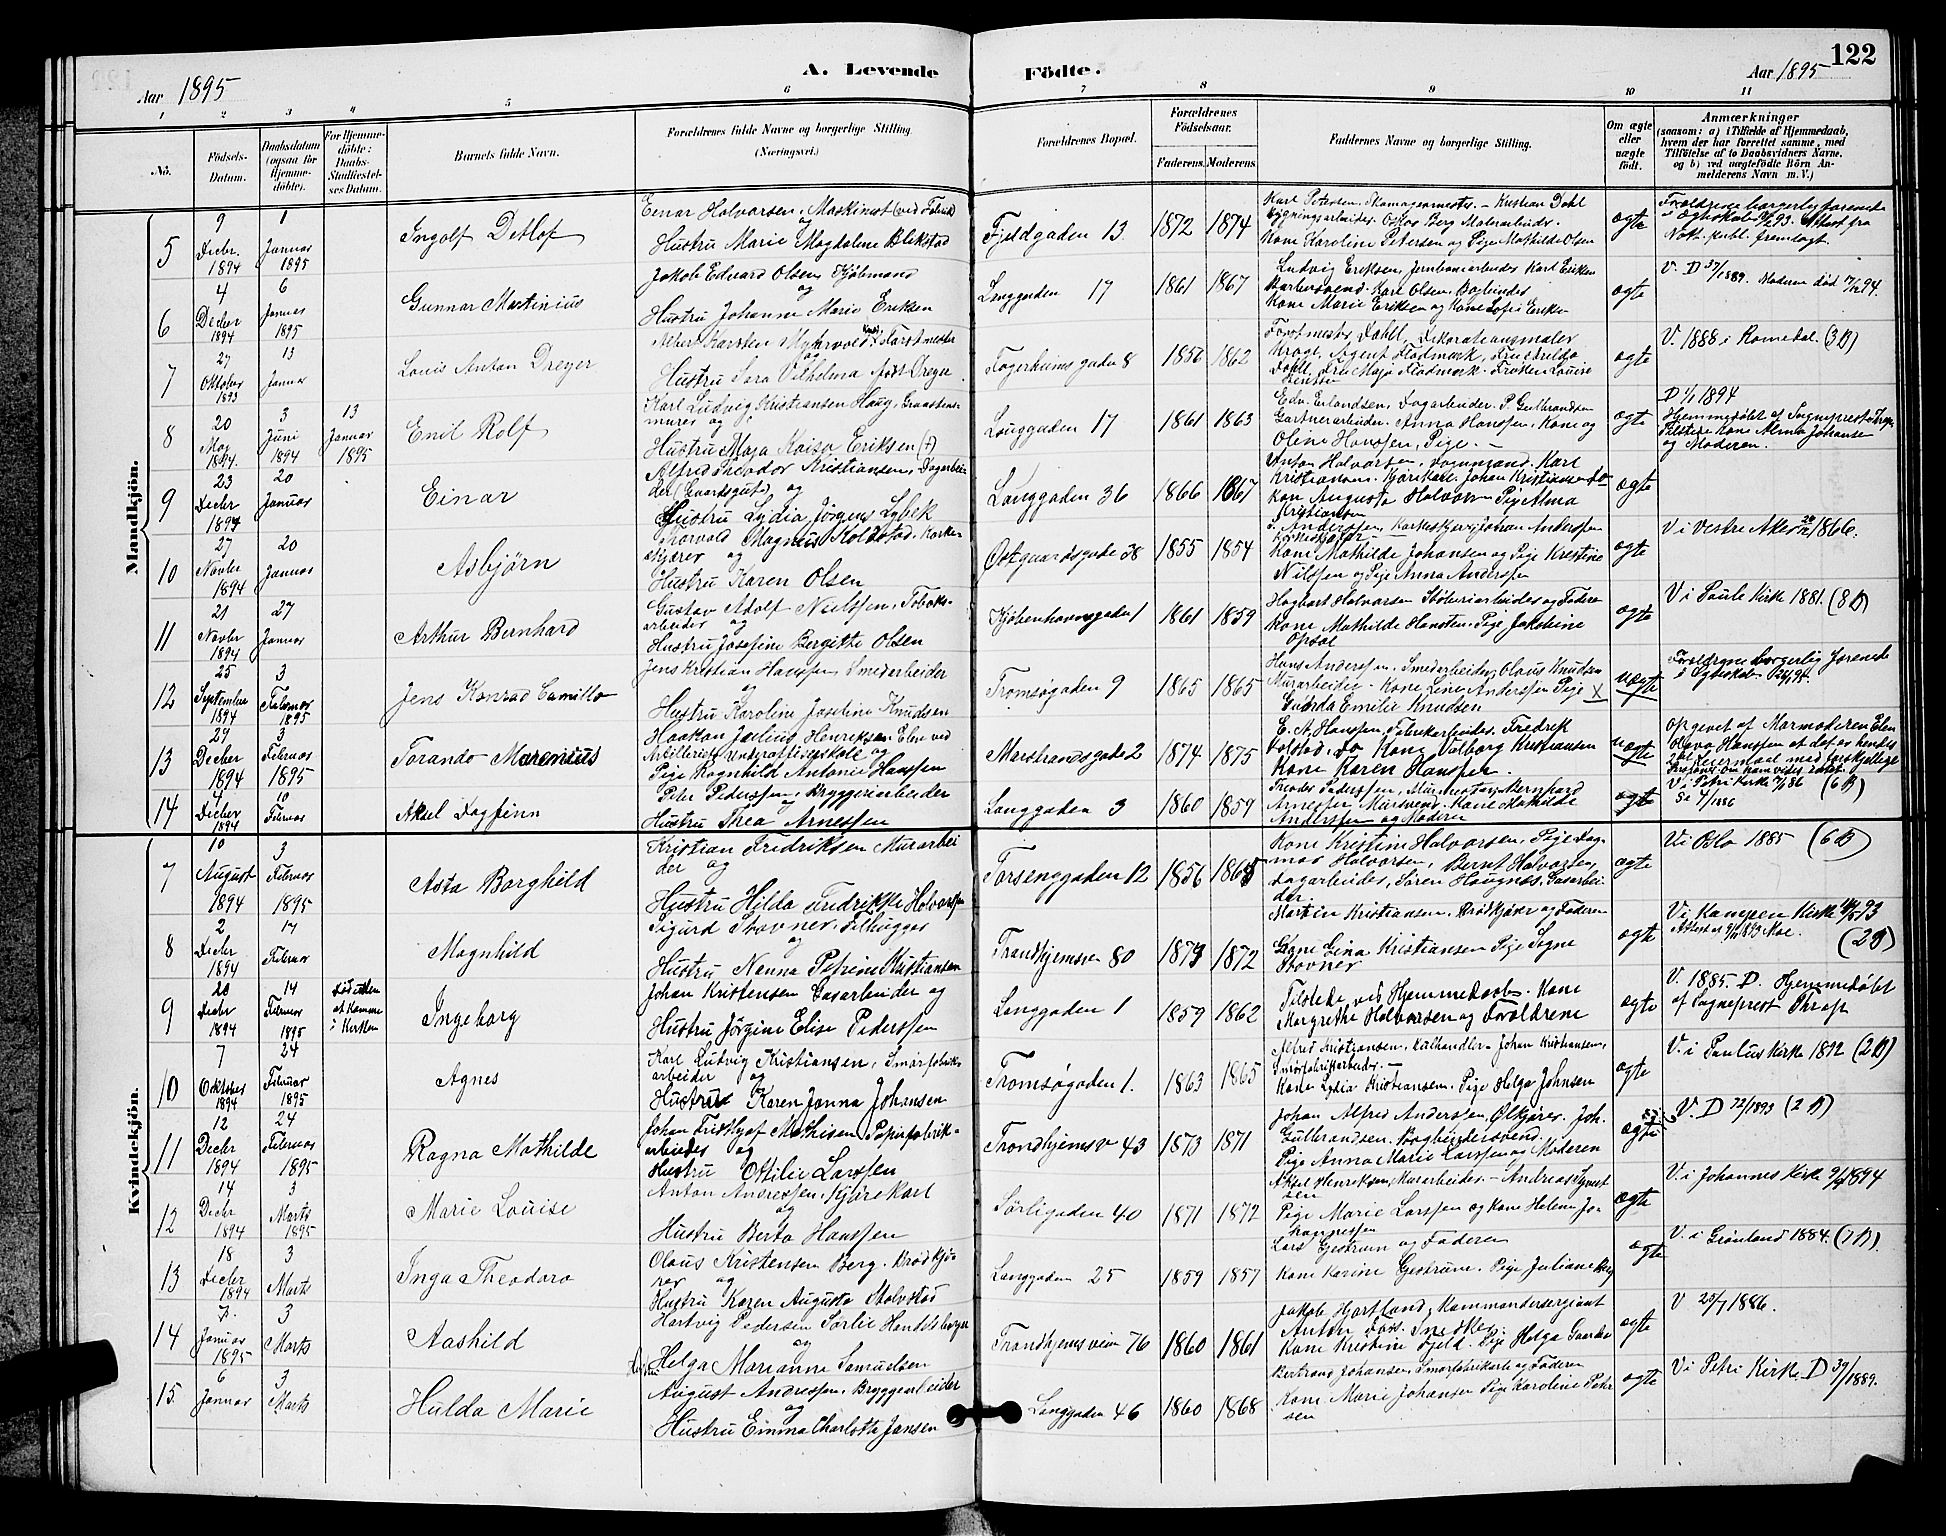 122
Aar 1895
A. Levende Födte.
Aar 1895
1 2 3 4 5 6 7 8 9 10 11
No.
Födsels-Datum.
Daabsdatum (ogsaa för Hjemme-döbte).
For Hjemme-döbte: Daabs-Stadfæstel-ses Datum.
Barnets fulde Navn.
Forældrenes fulde Navne og borgerlige Stilling.
(Næringsvei.)
Forældrenes Bopæl.
Forældrenes Födselsaar.
Faderens. Moderens.
Faddernes Navne og borgerlige Stilling.
Om ægte eller uægte födt.
Anmærkninger
(saasom: a) i Tilfælde af Hjemmedaab,
hvem der har forrettet samme, med
Tilföielse af to Daabsvidners Navne,
og b) ved uægtefödte Börn An-
melderens Navn m. V.)
Mandkjön.
5
9 Decbr. 1894
1 Januar 1895
Ingolf Detlof
Einar Halvorsen, Maskinist (ved Fabrik)
og
Hustru Marie Magdalene Blekstad
Fjeldgaden 13.
1872 1874
Karl Petersen, Skomagermester. - Kristian Dahl
Bygningsarbeider. Oskar Berg Malerarbeider.
Kone Karoline Petersen og Pige Mathilde Olsen
ægte
6
4 Decbr 1894
6 Januar 1895
Gunnar Martinius
Jakob Edvard Olsen, Kjöbmand
og
Hustru Johanne Marie Eriksen
Langgaden 17
1861 1867
Ludvig Eriksen, Jernbanearbeider Karl Eriksen
Kone Marie Eriksen og Kone Sofie Eriksen
ægte
V. D 37/1889. Moderen död
7
27 Oktober 1893
13 Januar
Louis Anton Dreyer
Albert Karsten Myhrvold, Forstmester
og
Hustru Sara Vilhelma födt Dreyer
Fagerheimsgaden 8
1856 1862
Forstmester Dahll, Dekorationsmaler
Krogh, Agent Flodmark, Fru Hilda
Dahll, Fru Maja Flodmark. Fröken Louise
ægte
V. 1888 i Romedal. (3 B)
8
20 Maj 1894.
3 Juni 1894
13 Januar 1895
Emil Rolf
Karl Ludvig Kristiansen Haug, Graastens-
murer og
Hustru Maja Kaisa Eriksen (+)
Langgaden 17
1861 1863
Edv. Erlandsen, Dagarbeider. P. Gulbrandsen
Gartnerarbeider. Anna Hanssen, Kone og
Oline Hanssen, Pige. -
ægte
D 1/1 1894
Hjemmedöbt af Sogneprest Thrap
Tilstede Kone Alma Johansen
og Moderen.
9
23 Decbr 1894
20 Januar
Einar
Alfred Theodor Kristiansen, Dagarbei-
der og
Hustru Lydia Jörgens Lybek
Langgaden 36
1866 1867
Anton Halvorsen, Dagmand. Karl
Kristiansen, Kjörekarl, Johan Kristiansen do
Kone Augusta Halvorsen Pige Alma
Kristiansen
ægte
10
27 Novbr 1894
20 Januar
Asbjörn
Thorvald Magnus Koldstad, Korke-
skjærer og
Hustru Karen Olsen
Östgaardsgade 38
1855 1854
Anderssen - Korkeskjærer, Johan Anderssen
Kone Mathilde Johansen og Pige Kristine
Nilssen og Pige Anna Anderssen
ægte
V i Vestre Aker 1866.
11
21 Novbr 1894
27 Januar
Arthur Bernhard
Gustav Adolf Nielssen, Tobaks-
arbeider og
Hustru Josefine Bergitte Olsen
Kjöbenhavnsgaden 1
1861 1859
Hagbart Halvorsen Stöberiarbeider og Faderen
Kone Mathilde Hansten. Pige Jakobine
Opsal
ægte
V i Pauls Kirke 1881. (8 B)
12
25 September 1894
3 Februar 1895
Jens Konrad Camillo
Jens Kristian Hanssen Smedarbeider
og
Hustru Karoline Josefine Knudsen
Tromsögaden 9
1865 1865
Hans Anderssen. Smedarbeider, Olaus Knudsen
Murarbeider - Kone Line Anderssen Pige
Emilie Knudsen
uægte
13
29 Decber 1894
3 Februar 1895
Torando Marenius
Haakon Julius Henriksen Elev ved
Artilleriets Underofficersskole og
Pige Ragnhild Antonie Hanssen
Marstrandsgade 2
1874 1875
E. A. Hanssen, Fabrikarbeider. Fredrik
Volstad, do Kone Valborg Kristiansen
Kone Karen Hanssen.
uægte
opgivet af Mormoderen Elen
14
4 Decber 1894
10 Februar
Aksel Dagfinn
Peter Pederssen, Bryggeriarbeider
og
Hustru Thea Arnessen
Langgaden 3
1860 1859
Arnessen, Mursvend. Kone Mathilde
Anderssen og Moderen
ægte
V i Petri Kirke 7/86 (6 B)
Kvindekjön.
7
10 August 1894
3 Februar 1895
Asta Borghild
Kristian Fredriksen Murarbei
der og
Hustru Hilda Fredrikke Halvorssen
Torsenggaden 12
1856 1865
Kone Kristine Halvorsen, Pige Dag-
mar Halvorsen, Bernt Halvorsen,
Dagarbeider, Sören Haugnæs, Gasarbei-
der
ægte
V i Oslo 1885 (6 B)
8
2 Decbr 1894
17 Februar
Magnhild
Sigurd Stovner, Filhugger
og
Hustru Nanna Petrine Kristiansen
Trondhjemsvn 80
1873 1872
Martin Kristiansen. Brödkjörer og Faderen
Kone Lina Kristiansen Pige Signe
Stovner
ægte
V i Kampen Kirke 93
(2 B)
9
20 Decbr 1894
14 Februar 1895
Död inden at komme i Kirken
Ingeborg
Johan Kristensen Gasarbeider og
Hustru Jörgine Elise Pederssen
Langgaden 1
1859 1862
Tilstede ved Hjemmedaab. Kone
Margrethe Halvorsen og Forældrene
ægte
V. 1885. D. Hjemmedöbt
af Sogneprest Thrap
10
7 Oktober 1894
24 Februar 1895
Agnes
Karl Ludvig Kristiansen, Smörfabrik-
arbeider og
Hustru Karen Janna Johansen
Tromsögaden 1.
1863 1865
Alfred Kristiansen, Kulhandler - Johan Kristiansen,
Smörfabrikarbeider. -
Kone Lydia Kristiansen. Pige Helga Johnsen
ægte
V. i Paulus Kirke 1892 (2 B)
11
12 Decbr 1894
24 Februar 1895
Ragna Mathilde
Johan Fridthjof Mathisen Papirfabrik-
arbeider og
Hustru Ottilie Larssen
Trondhjemsv 43
1873 1871
Johan Alfred Anderssen, Ölkjörer. Joh.
Gulbrandsen. Bogbindersvend.
Pige Anna Marie Larssen og Moderen
ægte
V. D 72/1893 (2 B)
12
14 Decbr 1894
3 Marts 1895
Marie Louise
Anton Andressen, Kjörekarl
og
Hustru Berta Hanssen
Sörligaden 40
1871 1872
Aksel Henriksen, Murarbeider. - Andreas Syvert
sen
Pige Marie Larssen og Kone Helene Jo-
hannessen
ægte
V. i Johannes Kirke 1894
13
18 Decbr 1894
3 Marts
Inga Theodora
Olaus Kristensen Berg. Brödkjö-
rer og
Hustru Karen Augusta Stolvstad
Langgaden 25
1859 1857
Lars Gjestrum og Faderen
Kone Karine Gjestrum. Pige Juliane Berg
ægte
V. i Grönland 1884. (7 B).
14
7. Januar 1895
3 Marts
Aashild
Hartvig Pedersen Sörlie Handelsborger
og
Hustru Helga Marianne Samuelsen
Trondhjemsveien 76
1860 1861
Jakob Hjortland, Kommandersergiant
Anton Foss. Snedker.
Kone Kristine Fjeld. Pige Helga Gaarder
ægte
V 25/7 1886.
15.
6 Januar
3 Marts
Hulda Marie
August Andressen, Bryggeriarbeider
og
Hustru Emma Charlotte Jansen
Langgaden 46
1860 1868
Bertrand Johansen, Smörfabrikarb og Faderen
Kone Marie Johansen Pige Karoline Peter
sen
ægte
V i Petri Kirke D 39/1889.